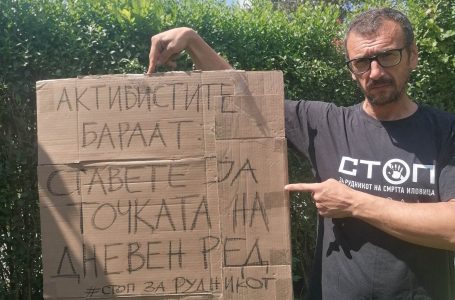 АКТИВИСТИТЕ
БАРААТ
СТАВЕТЕ ЗА
ТОЧКАТА НА
ДНЕВЕН РЕД
#СТОП ЗА РУДНИКОТ
СТОП
ЗА РУДНИКОТ НА СМРТТА ИЛОВИЦА